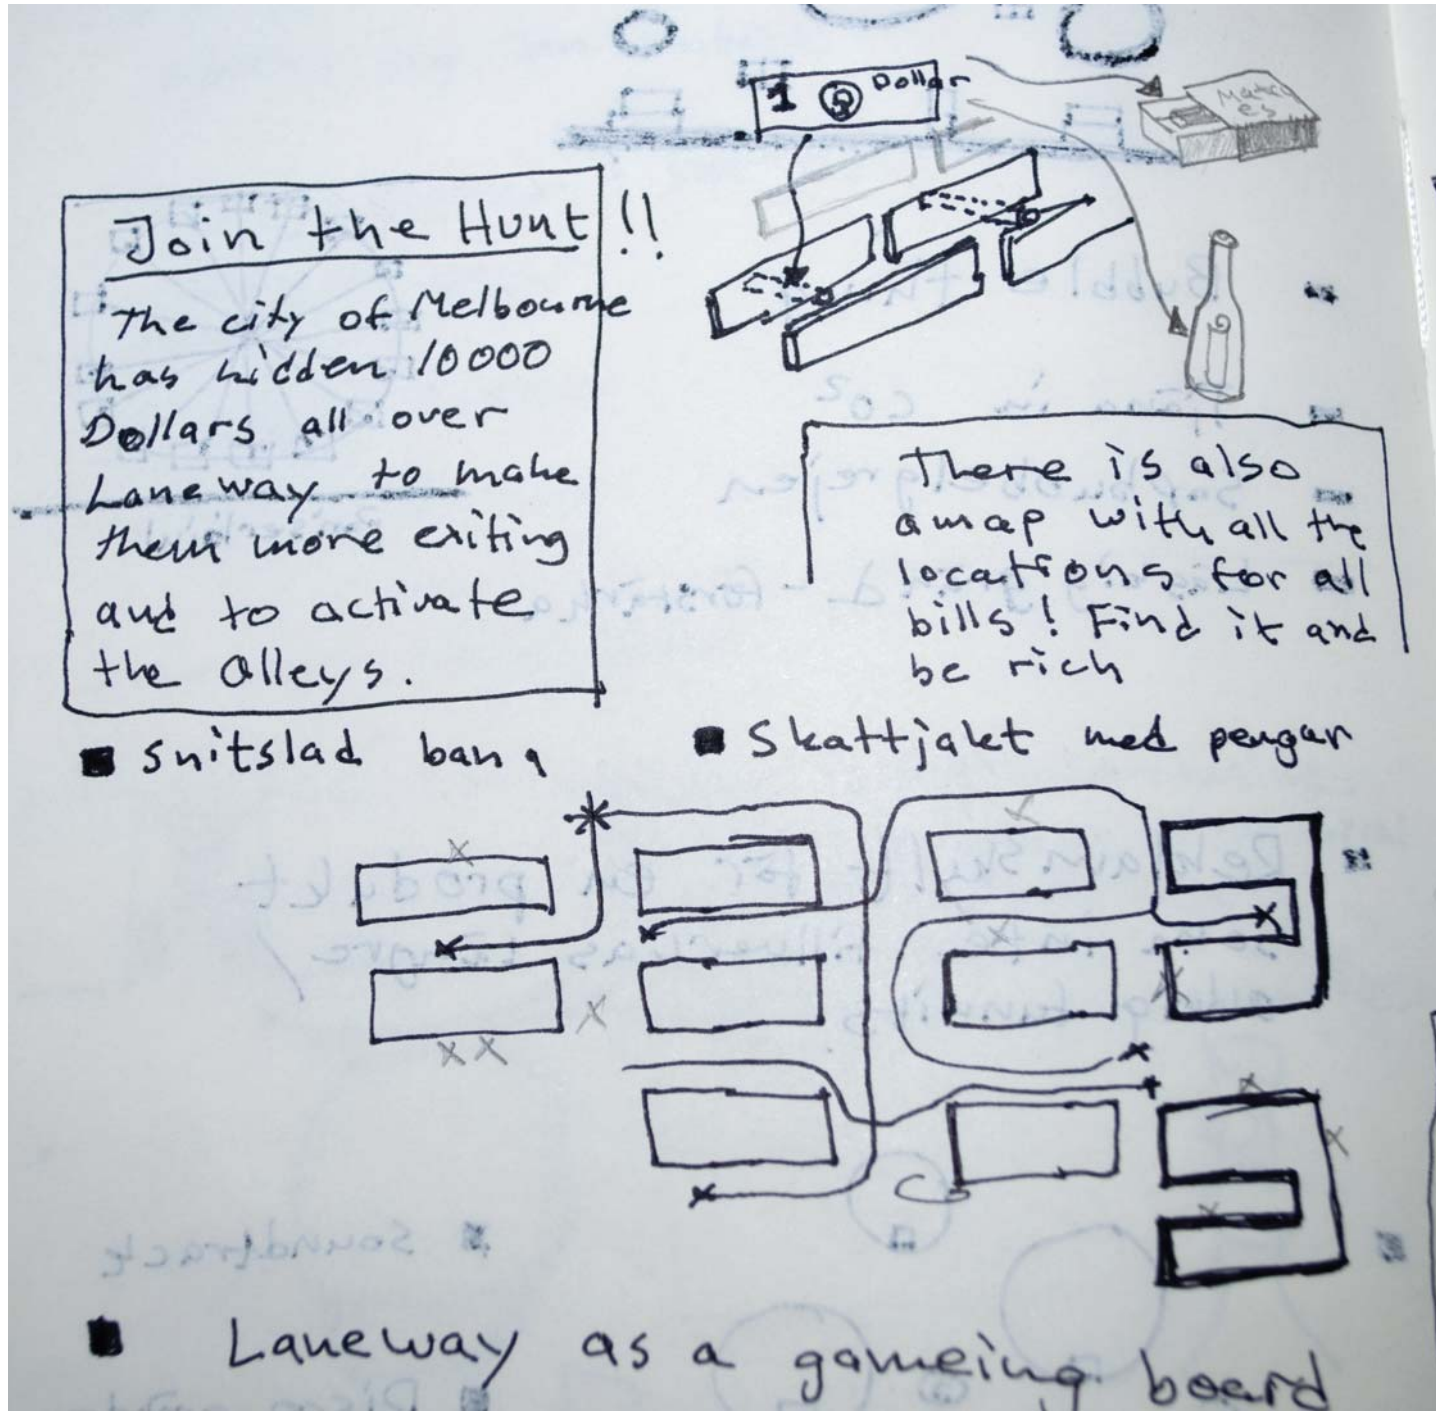 1 $ Dollar
Matches
Join the Hunt!!
The city of Melbourne
has hidden 10000
Dollars all over
Laneway to make
them more exiting
and to activate
the Alleys.
There is also
a map with all the
locations for all
bills! Find it and
be rich
Snitslad bana
Skattjakt med pengar
Laneway as a gameing board